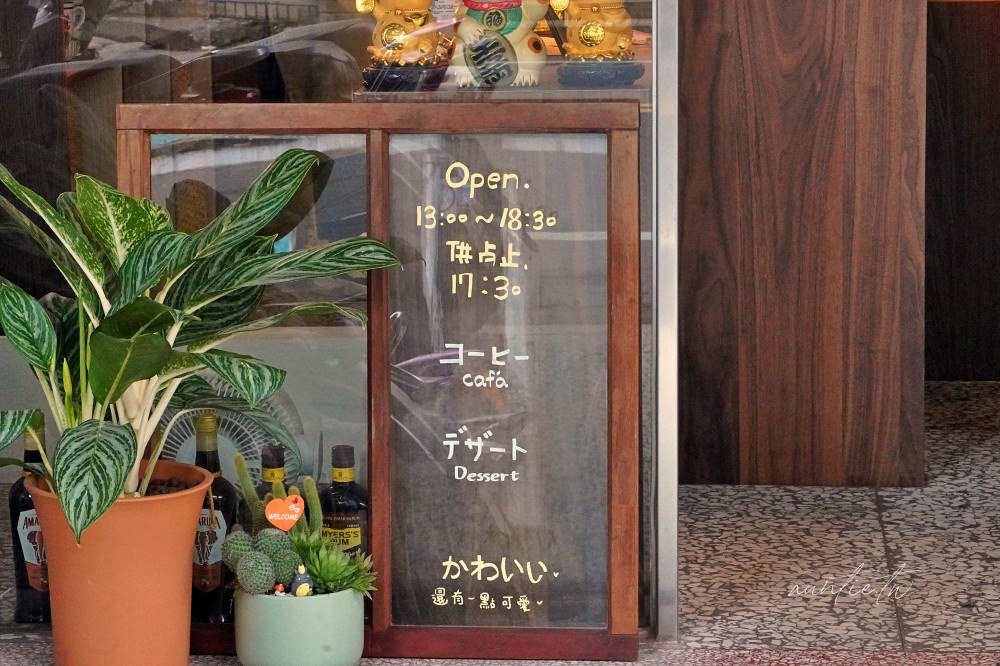 Open.
13:00~18:30
供点止.
17:30
コーヒー
cafá
デザート
Dessert
かわいい
還有一點可愛
WELCOME
AMARULA
MYERS'S
RUM